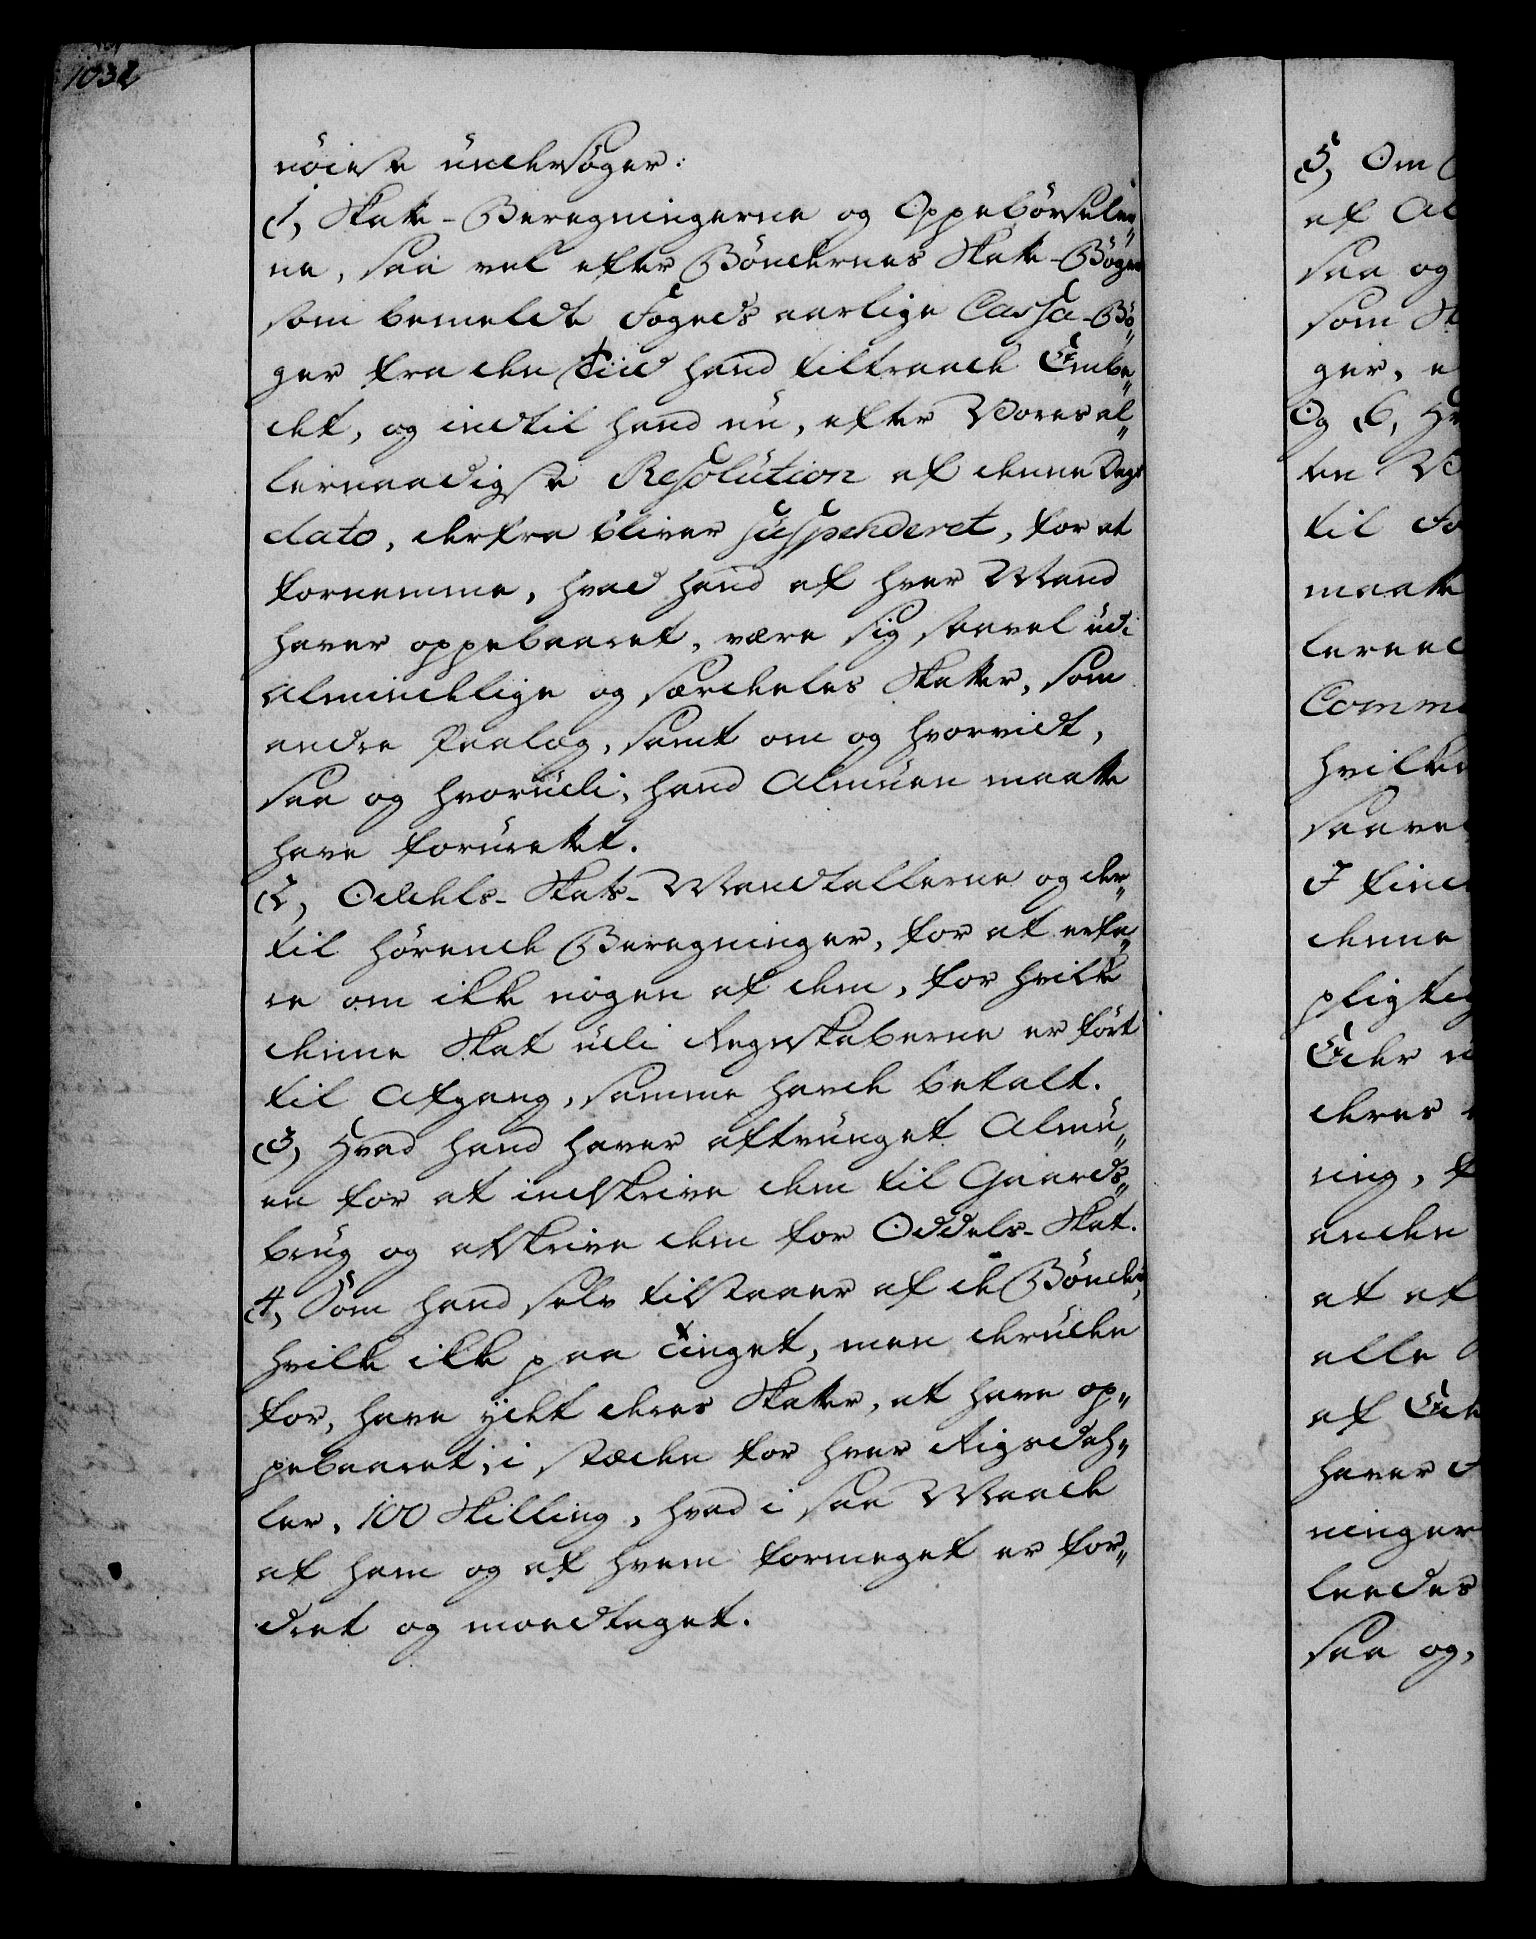 1032
nöieste undersøger:
1, Skatte-Beregningerne og Oppebørseler„
ne, saa vel efter Bøndernes Skatte-Bøger
som bemeldte Fogeds aarlige Cassa-Bø„
ger fra den Tiid hand tiltraade Embe„
det, og indtil hand nu, efter Vores al„
lernaadigste Resolution af denne Dags
dato, derfra bliver suspenderet, for at
fornemme, hvad hand af hver Mand
haver oppebaaret, være sig saavel udi
Almindelige og særdeles Skatter, som
andre Paalæg, samt om og hvorvidt,
saa og hvorudi, hand Almuen maatte
have forurettet.
2, Oddels-Skats-Mandtallerne og der„
til hørende Beregninger, for at erfa„
re om ikke nogen af dem, for hvilke
denne Skat udi Regnskaberne er ført
til Afgang, samme havde betalt.
3, Hvad hand haver aftvunget Almu„
en for at indskrive dem til Gaards„
brug og afskrive dem for Oddels-Skat.
4, Som hand selv tilstaaer af de Bønder,
hvilke ikke paa Tinget, men deruden
for, have ydet deres Skatter, at have op„
pebaaret, i stæden for hver Rigsdah„
ler, 100 Skilling, hvad i saa Maade
af ham og af hvem formeget er for„
dret og modtaget.
5, Om
af Al
saa og
som
ger,
Og 6,
ten
til
maatte
lernaa
Comm
hvilke
saavel
I find
denne
pligtig
Eder
deres
ring,
anden
at af
alle
af Ede
haver
ninger
ledes
saa og,